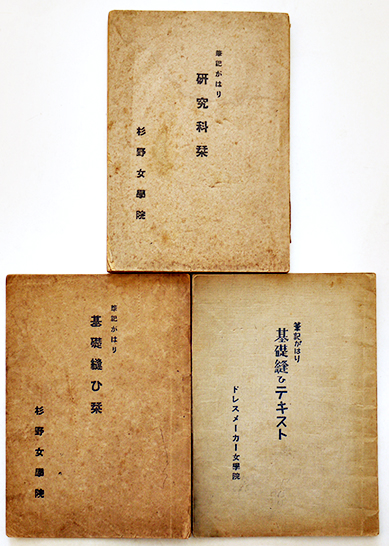 筆記がはり
研究科栞
杉野女學院
筆記がはり
基礎縫ひ栞
杉野女學院
筆記がはり
基礎縫ひテキスト
ドレスメーカー女學院